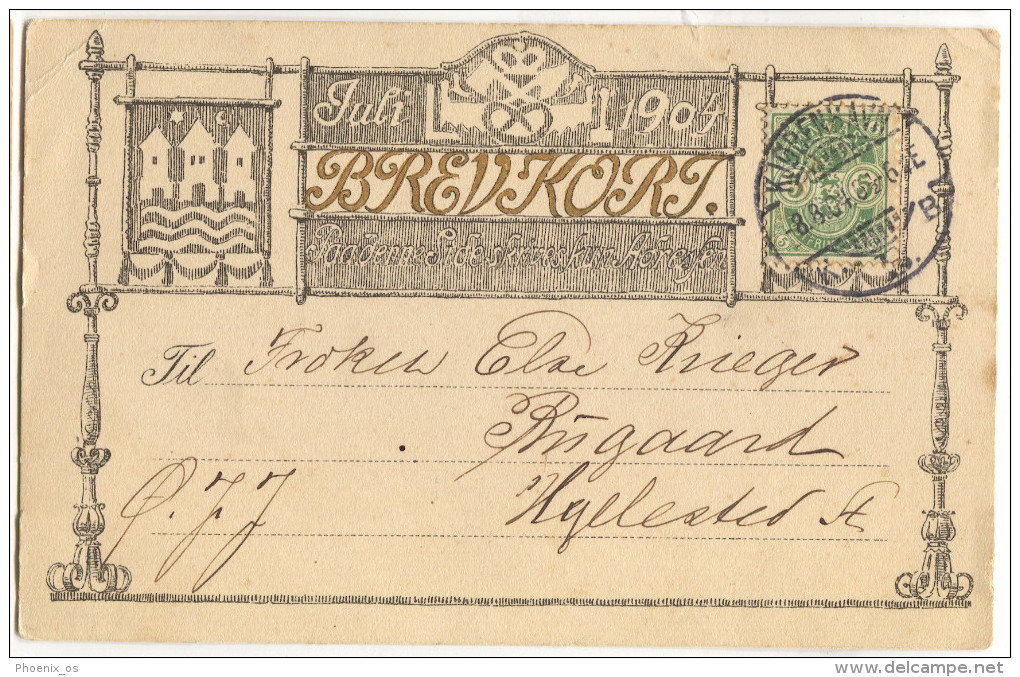 Juli 1904
BREVKORT.
Paa denne Side skrives kun Adressen
KJØBENHAVN
8.8.04. 5-6 E
K. B.
5 5
Til Frøken Else Krieger
Rugaard
Hyllested St
Ø. J. J
Phoenix_os
http://www.delcampe.net